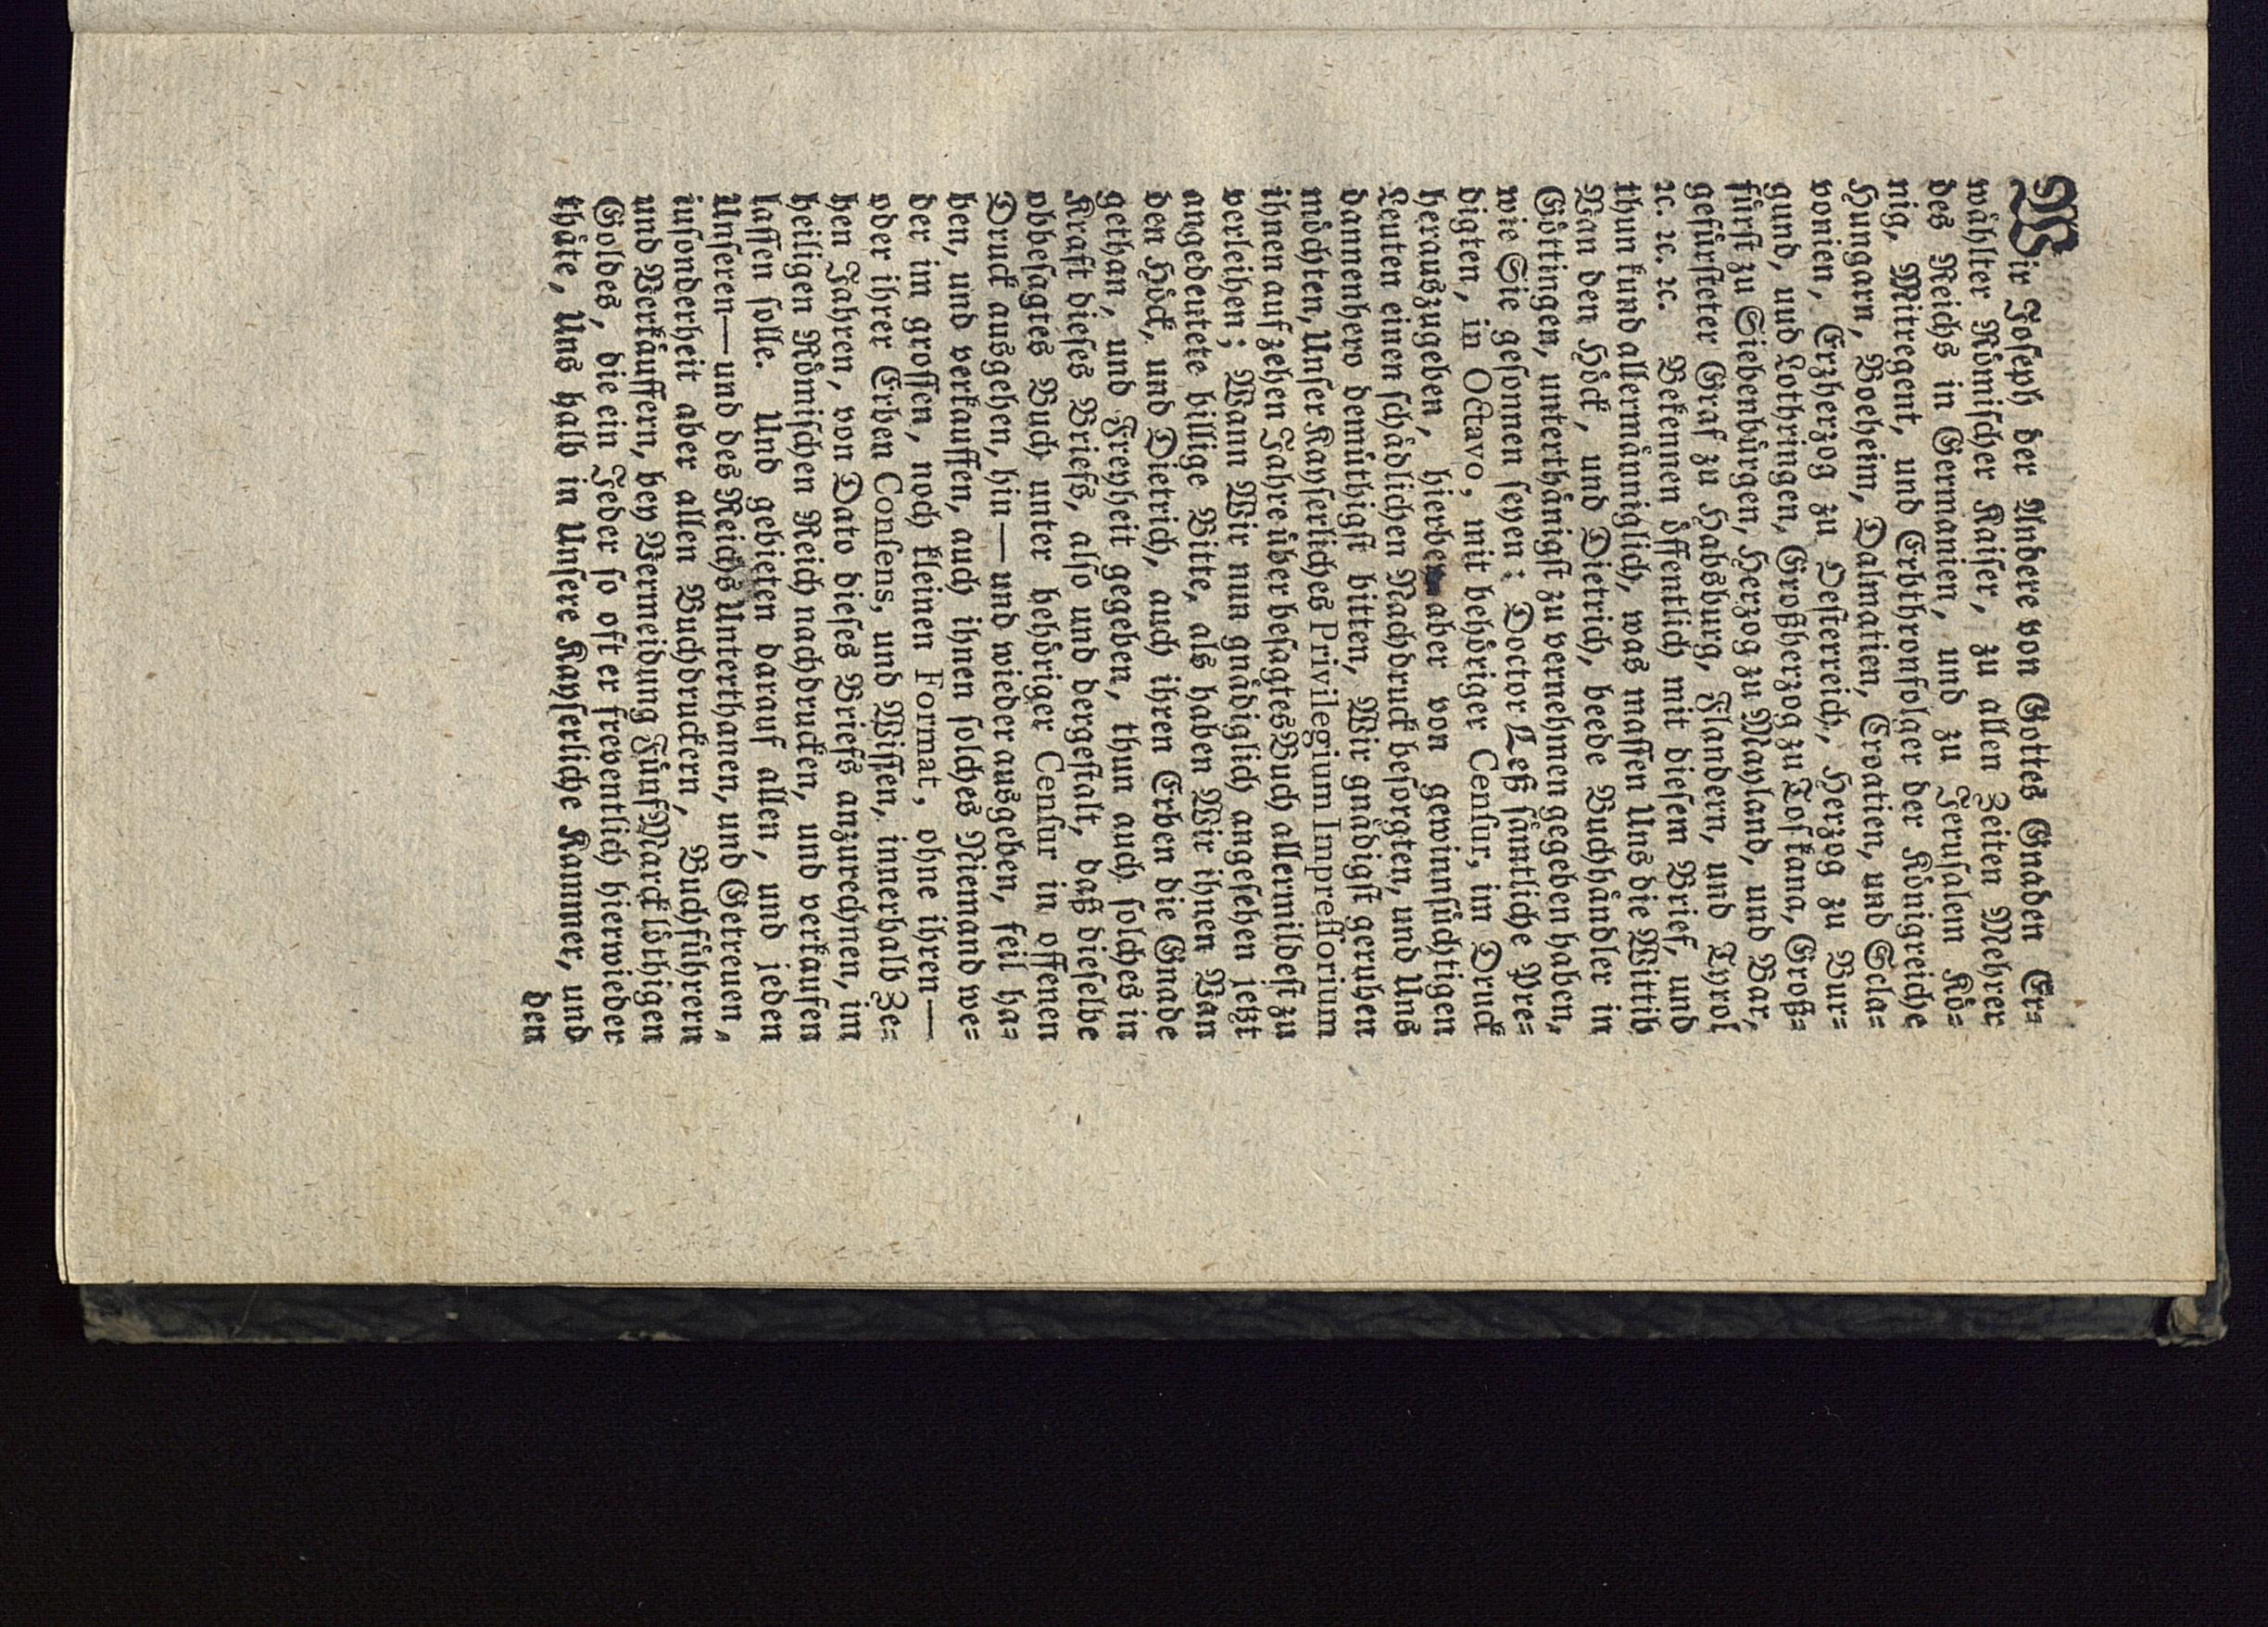 Wir Joseph der Andere von Gottes Gnaden Er-
wählter Römischer Kaiser, zu allen Zeiten Mehrer
des Reichs in Germanien, und zu Jerusalem Kö-
nig, Mitregent, und Erbthronfolger der Königreiche
Hungarn, Boeheim, Dalmatien, Croatien, und Scla-
vonien, Erzherzog zu Oesterreich, Herzog zu Bur-
gund, und Lothringen, Großherzog zu Toskana, Groß-
fürst zu Siebenbürgen, Herzog zu Mayland, und Bar,
gefürsteter Graf zu Habsburg, Flandern, und Tyrol
ꝛc. ꝛc. ꝛc. Bekennen öffentlich mit diesem Brief, und
thun kund allermänniglich, was massen Uns die Wittib
Van den Höck, und Dietrich, beede Buchhändler in
Göttingen, unterthänigst zu vernehmen gegeben haben,
wie Sie gesonnen seyen: Doctor Leß säntliche Pre-
digten, in Octavo, mit behöriger Censur, im Druck
herauszugeben, hierbey aber von gewinnsüchtigen
Leuten einen schädlichen Nachdruck besorgten, und Uns
dannenhero demüthigst bitten, Wir gnädigst geruhen
möchten, Unser Kayserliches Privilegium Impressorium
ihnen auf zehen Jahre über besagtes Buch allermildest zu
verleihen; Wann Wir nun gnädiglich angesehen jetzt
angedeutete billige Bitte, als haben Wir ihnen Van
den Höck, und Dietrich, auch ihren Erben die Gnade
gethan, und Freyheit gegeben, thun auch solches in
Kraft dieses Briefs, also und dergestalt, daß dieselbe
obbesagtes Buch unter behöriger Censur in offenen
Druck ausgehen, hin—und wieder ausgeben, feil ha-
ben, und verkauffen, auch ihnen solches Niemand we-
der im grossen, noch kleinen Format, ohne ihren—
oder ihrer Erben Consens, und Wissen, innerhalb Ze-
hen Jahren, von Dato dieses Briefs anzurechnen, im
heiligen Römischen Reich nachdrucken, und verkaufen
lassen solle. Und gebieten darauf allen, und jeden
Unseren—und des Reichs Unterthanen, und Getreuen,
insonderheit aber allen Buchdruckern, Buchführern
und Verkäuffern, bey Vermeidung Fünf Marck löthigen
Goldes, die ein Jeder so oft er freventlich hierwieder
thäte, Uns halb in Unsere Kayserliche Kammer, und
den